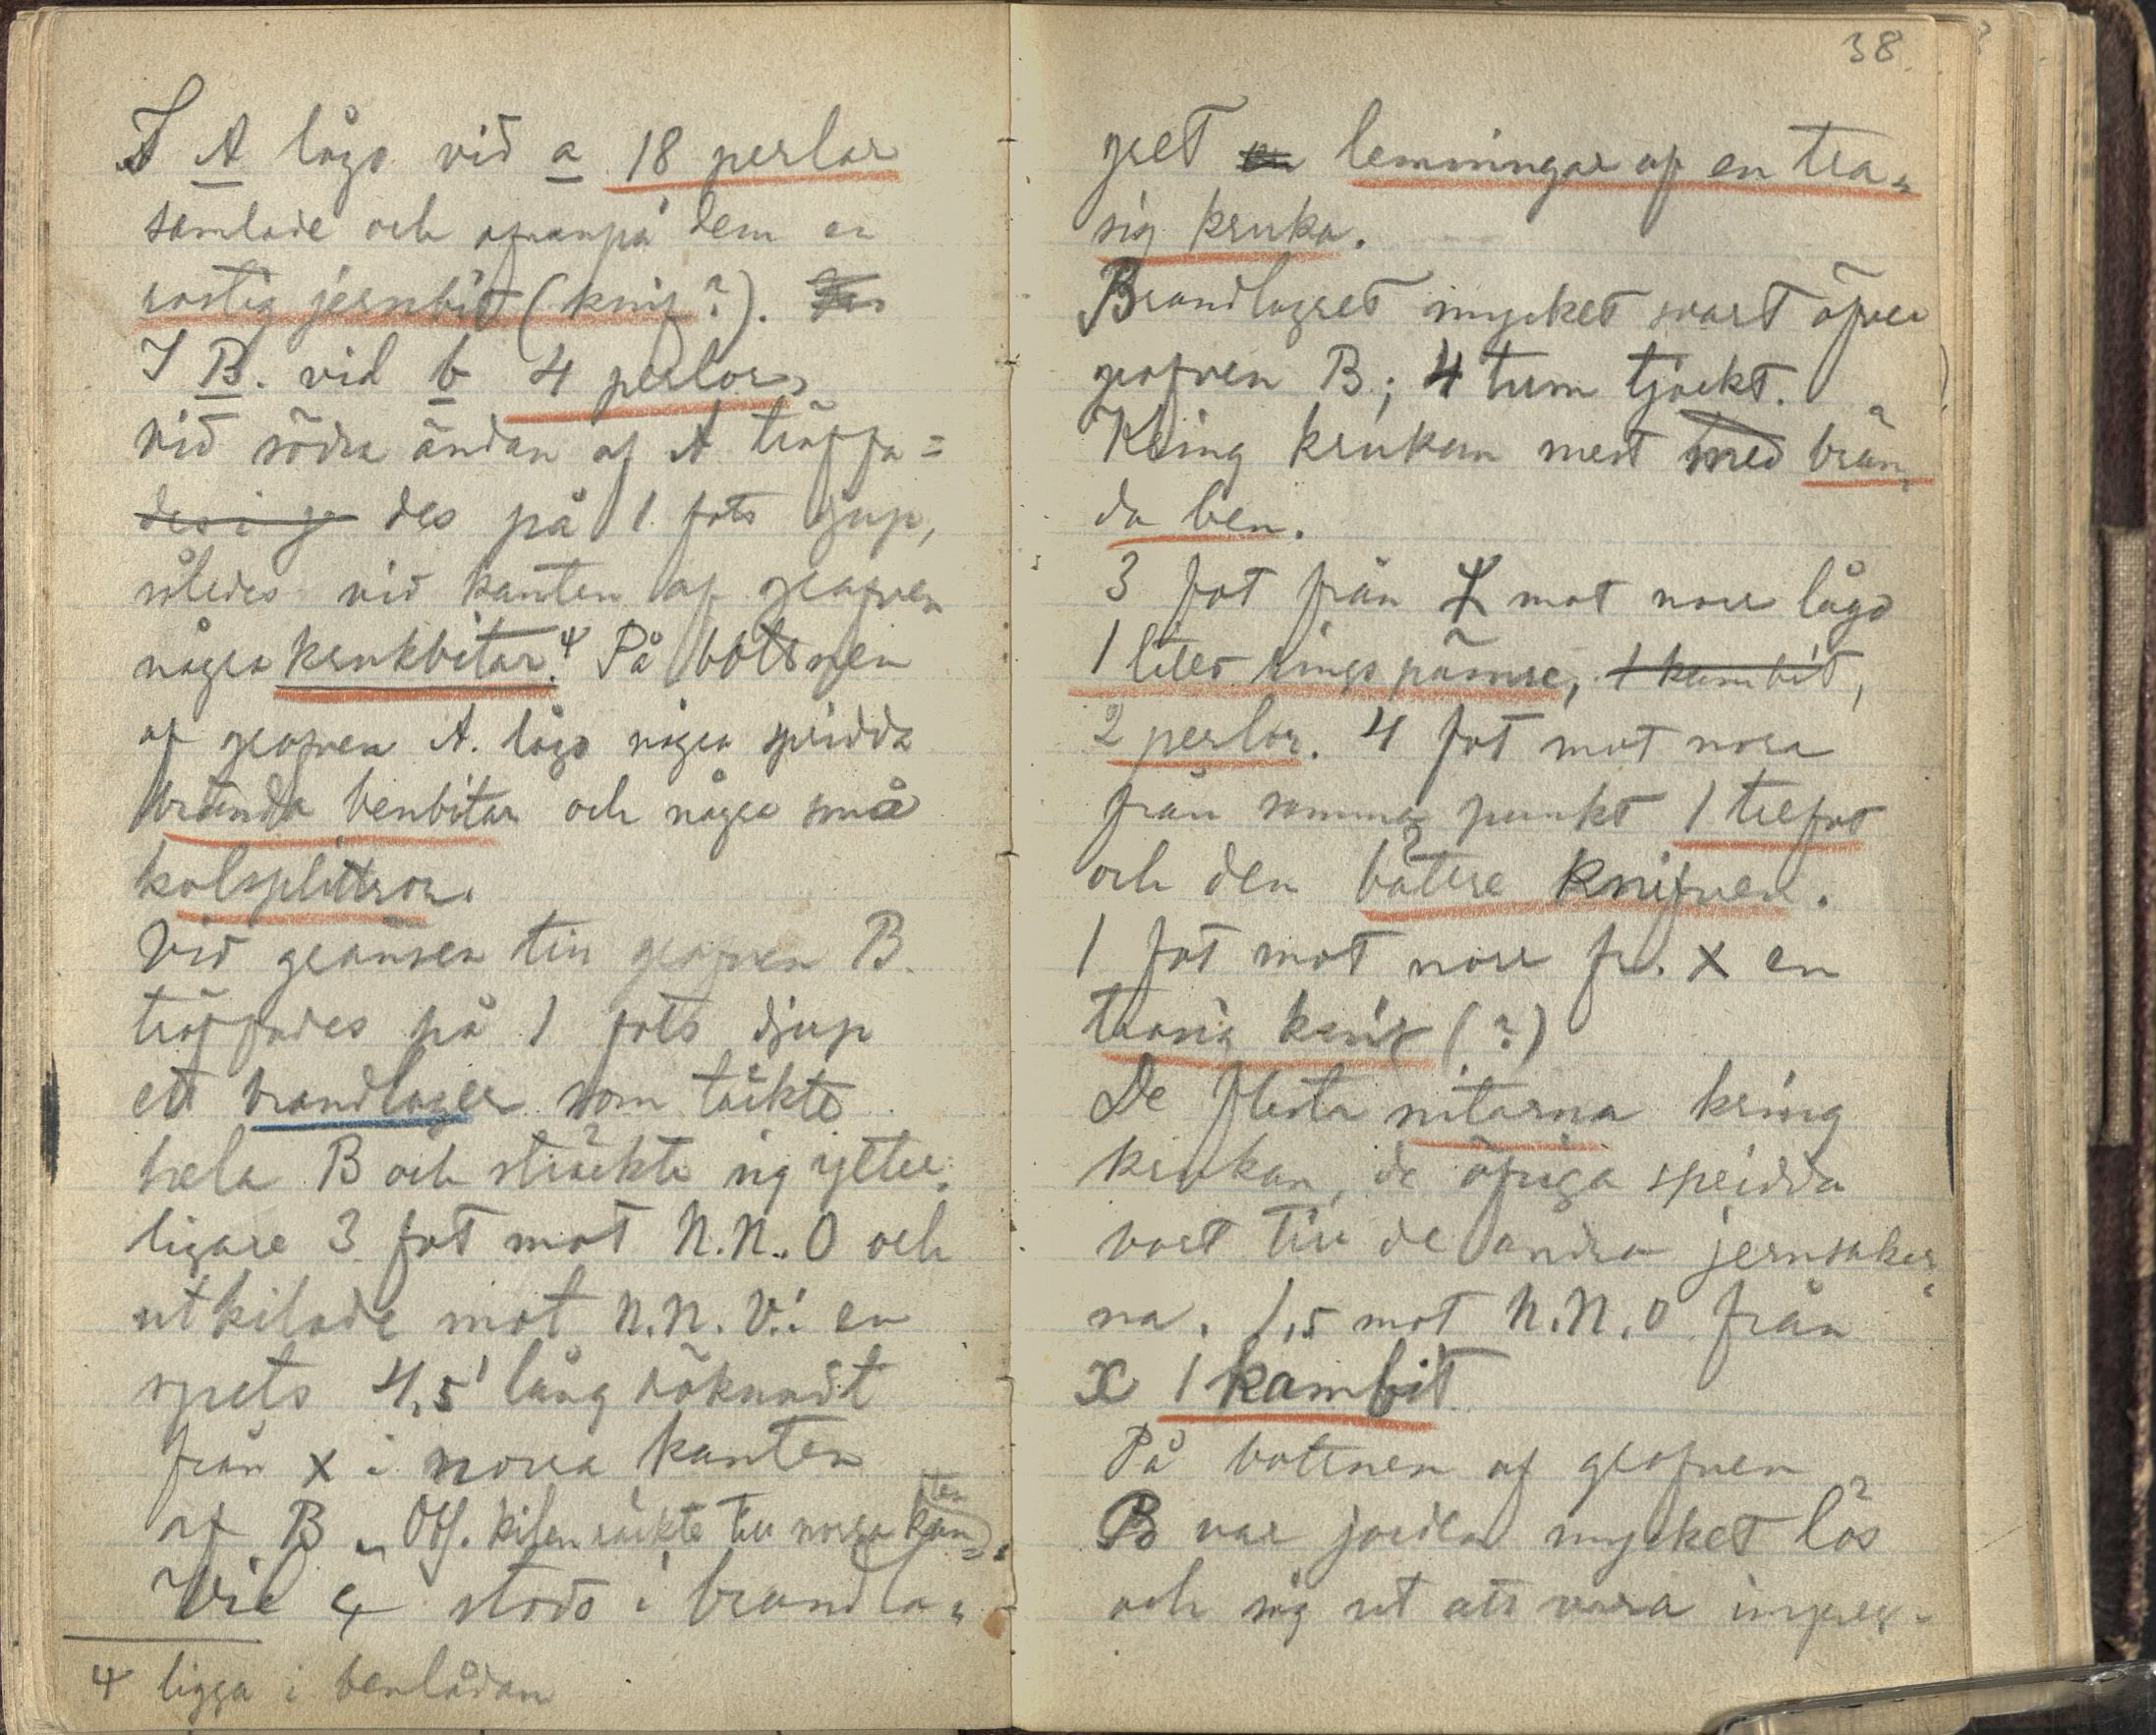 I A lågo vid a 18 perlor
samlade och ofvanpå dem en
rostig jernbit (knif?).
I B. vid b 4 perlor,
vid södra ändan af A träffa=
des i g des på 1 fots djup,
således vid kanten af grafven
några krukbitar. På bottnen
af grafven A. lågo några spridda
brända benbitar och några små
kolsplittror.
Vid gränsen till grafven B.
träffades på 1 fots djup
ett brandlager som täkte
hela B och sträkte sig ytter-
ligare 3 fot mot N.N.O och
utkilade mot N.N.V. i en
spets 4,5' lång räknadt
från x i norra kanten
af B. Obs. kilen räkte till norra kan=
ten
Vid 4 stod i brandla-
4 ligga i benlådan
38.
gret en lemningar af en tra-
sig kruka.
Brandlagret mycket svart öfver
grafven B; 4 tum tjockt.
Kring krukan mest med brän-
da ben.
3 fot från mot norr lågo
1 litet rings pänne, 1 kambit,
2 perlor. 4 fot mot norr
från samma punkt 1 trefot
och den bättre knifven.
1 fot mot norr fr. x en
trasig knif (?)
De flesta nitarna kring
krukan, de öfriga spridda
bort till de andra jernsaker-
na. 1,5 mot N.N.O från
x 1 kambit
På bottnen af grafven
B var jorden mycket lös
och såg ut att vara impreg-